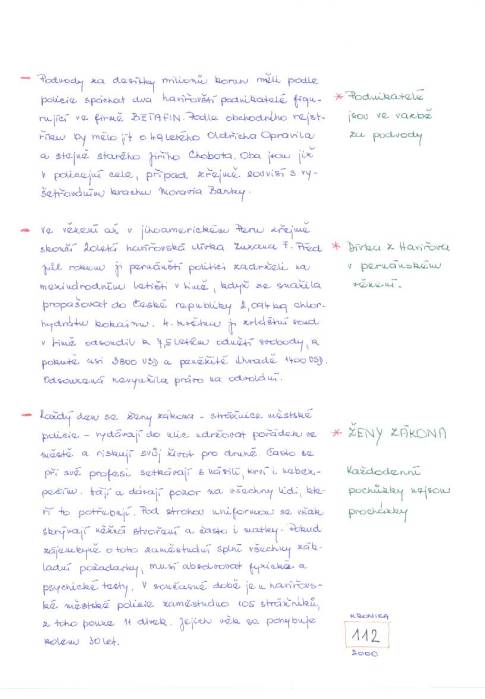 – Podvody za desítky milionů korun měli podle
policie spáchat dva havířovští podnikatelé figu-
rující ve firmě BETAFIN. Podle obchodního rejst-
říku by mělo jít o 49letého Oldřicha Opravila
a stejně starého Jiřího Chobota. Oba jsou již
v policejní cele, případ zřejmě souvisí s vy-
šetřováním krachu Moravia Banky.
* Podnikatelé
jsou ve vazbě
za podvody
– Ve vězení až v jihoamerickém Peru zřejmě
skončí 20letá havířovská dívka Zuzana F. Před
půl rokem ji peruánští policisté zadrželi na
mezinárodním letišti v Limě, když se snažila
propašovat do České republiky 2,094 kg chlor-
hydrátu kokainu. 4. května ji zvláštní soud
v Limě odsoudil k 7,5letém odnětí svobody, k
pokutě asi 3800 USD a peněžité úhradě 1400 USD.
Odsouzená nevyužila právo na odvolání.
* Dívka z Havířova
v peruánském
vězení.
– Každý den se ženy zákona – strážnice městské
policie – vydávají do ulic udržovat pořádek ve
městě a riskují svůj život pro druhé. Často se
při své profesi setkávají s násilí, krví i nebez-
pečím. Jdou a dávají pozor na všechny lidi, kte-
ří to potřebují. Pod strohou uniformou se však
skrývají něžná stvoření a často i matky. Pokud
zájemkyně o toto zaměstnání splní všechny zák-
ladní požadavky, musí absolvovat fyzické a
psychické testy. V současné době je u havířovs-
ké městské policie zaměstnáno 105 strážníků,
z toho pouze 11 dívek. Jejich věk se pohybuje
kolem 30 let.
* ŽENY ZÁKONA
Každodenní
pochůzky nejsou
procházky
KRONIKA
112
2000